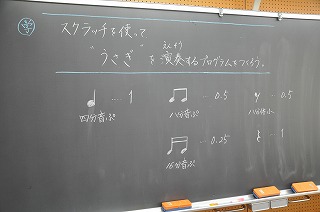 めあて
スクラッチを使って
"うさぎ"を演奏するプログラムをつくろう。
えんそう
… 1
四分音ぷ
… 0.5
八分音ぷ
… 0.5
八分休ふ
… 0.25
16分音ぷ
… 1